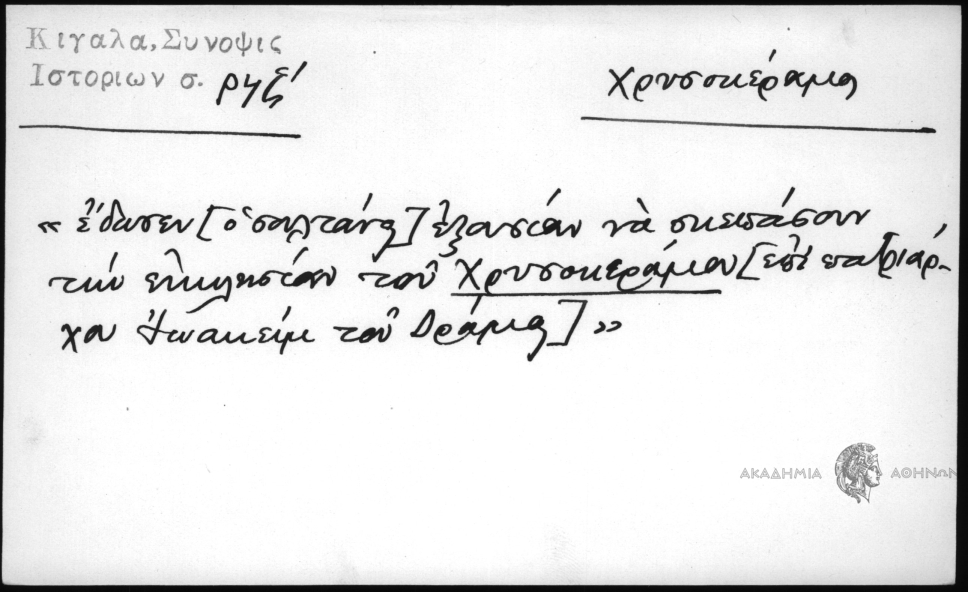 Κιγαλα, Συνοψις
Ιστοριων σ. ρηζ΄
Χρυσοκέραμος
« ἔδωσεν [ὁ σουλτάνος] ἐξουσίαν νὰ σκεπάσουν
τὴν ἐκκλησίαν τοῦ Χρυσοκεράμου [ἐπὶ πατριάρ-
χου Ἰωακεὶμ τοῦ Δράμας] »
ΑΚΑΔΗΜΙΑ ΑΘΗΝΩΝ